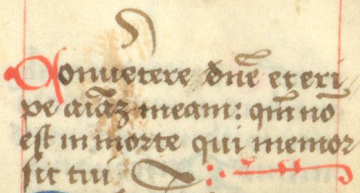 Conuertere dn̄e et eri
pe aīaꝫ meam: qm̄ nō
est in morte qui memor
sit tui